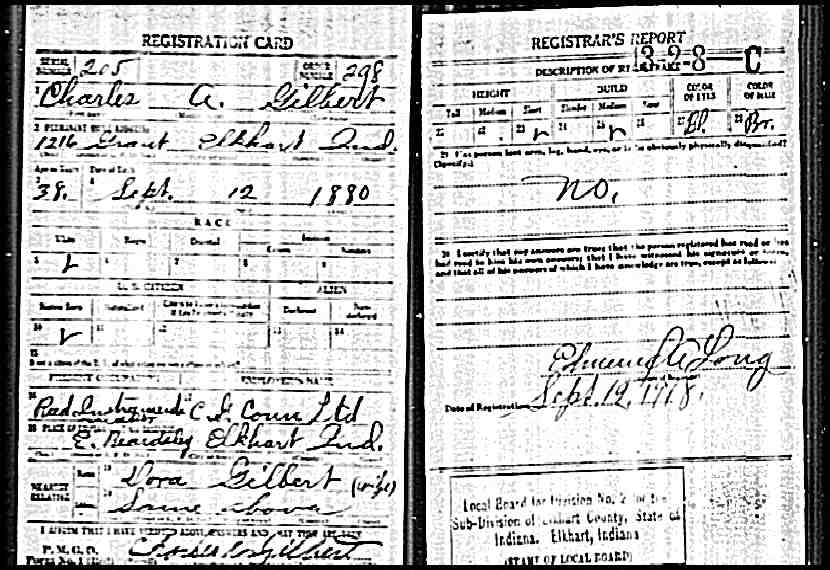 REGISTRATION CARD
SERIAL NUMBER 205 ORDER NUMBER 298
1 Charles A. Gilbert
2 PERMANENT HOME ADDRESS
1216 Grant Elkhart Ind.
Age in Years Date of Birth
38. Sept. 12 1880
RACE
White Negro Oriental Indian
Citizen
5 6 7 8 9
U. S. CITIZEN ALIEN
Native Born Naturalized Declarant
10 11 12 13 14
15
PRESENT OCCUPATION EMPLOYER'S NAME
16 Reed Instrument C. G. Conn Ltd
18 PLACE OF
E. Beardsley Elkhart Ind.
NEAREST RELATIVE Name Dora Gilbert (wife)
Same above
I AFFIRM THAT I HAVE VERIFIED ABOVE ANSWERS AND THAT THEY ARE TRUE
P. M. G. O.
Form No. 1
Charles A Gilbert
REGISTRAR'S REPORT
3 2 8 C
DESCRIPTION OF REGISTRANT
HEIGHT BUILD COLOR OF EYES COLOR OF HAIR
Tall Medium Short Slender Medium Stout
21 22 23 24 25 26 27 Bl. 28 Br.
29 Has person lost arm, leg, hand, eye, or is he obviously physically disqualified?
(Specify.)
no.
30 I certify that my answers are true; that the person registered has read or has
had read to him his own answers; that I have witnessed his signature or
and that all of his answers of which I have knowledge are true, except as follows:
Edmund A Long
Date of Registration Sept. 12, 1918.
Local Board for Division No. 2 for the
Sub-Division of Elkhart County, State of
Indiana. Elkhart, Indiana
(STAMP OF LOCAL BOARD)